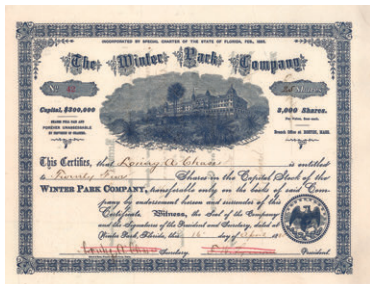 INCORPORATED BY SPECIAL CHARTER OF THE STATE OF FLORIDA, FEB., 1885.
The Winter Park Company
No. 42
Shares
Capital, $300,000
2,000 Shares.
FOREVER UNASSESSABLE
Branch Office at BOSTON, MASS.
This Certifies, that Loring A. Chase is entitled
to Twenty Five Shares in the Capital Stock of the
WINTER PARK COMPANY, transferable only on the books of said Com-
pany by endorsement hereon and surrender of this
Certificate. Witness, the Seal of the Company
and the Signatures of the President and Secretary, dated at
Winter Park, Florida, this 15 day of April
Loring A. Chase Secretary.
President.